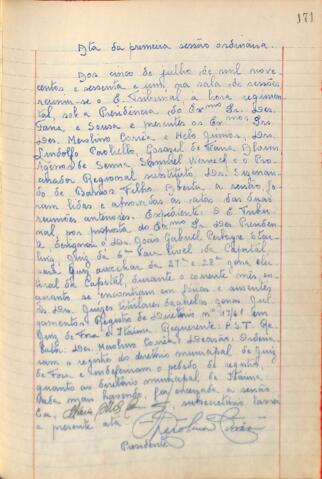 171
Ata da primeira sessão ordinária.
Aos cinco de julho, de mil nove-
centos e sessenta e um, na sala de sessões
reuniu-se o E. Tribunal, à hora regimen-
tal, sob a Presidência do Exmo Sr. Des.
Faria e Sousa e presentes os Exmos Srs.
Des. Merolino Corrêa e Helo Drs.
Lindolfo Paoliello, de Faria Alvim
de Sena, Samuel Werneck e o Pro-
curador Regional substituto, Dr.
do de Barros Filho. Aberta a sessão, fo-
ram lidas e aprovadas as atas das duas
reuniões anteriores. Expediente: O E. Tribu-
nal, por proposta do Exmo Sr. Des. Presiden-
te, designou o Dr. João Gabriel
Juiz da 6ª Vara Cível da Capital,
para Juiz auxiliar da 27ª e 28ª zona elei-
toral da Capital, durante o corrente mês, en-
quanto se encontram em férias e ausentes
os Drs. Juízes titulares daquelas zonas. Jul-
gamentos: Registro de Diretório nº 17/61
Juiz de Fora e Itaúna. Requerente: P.S.T. Re-
lator: Des. Merolino Corrêa. Decisão: Ordena-
ram o registro do diretório municipal de Juiz
de Fora e indeferiram o pedido de registro,
quanto ao diretório municipal de Itaúna.
Nada mais havendo, foi encerrada a sessão.
Eu, subsecretário, lavrei
a presente ata.
Presidente